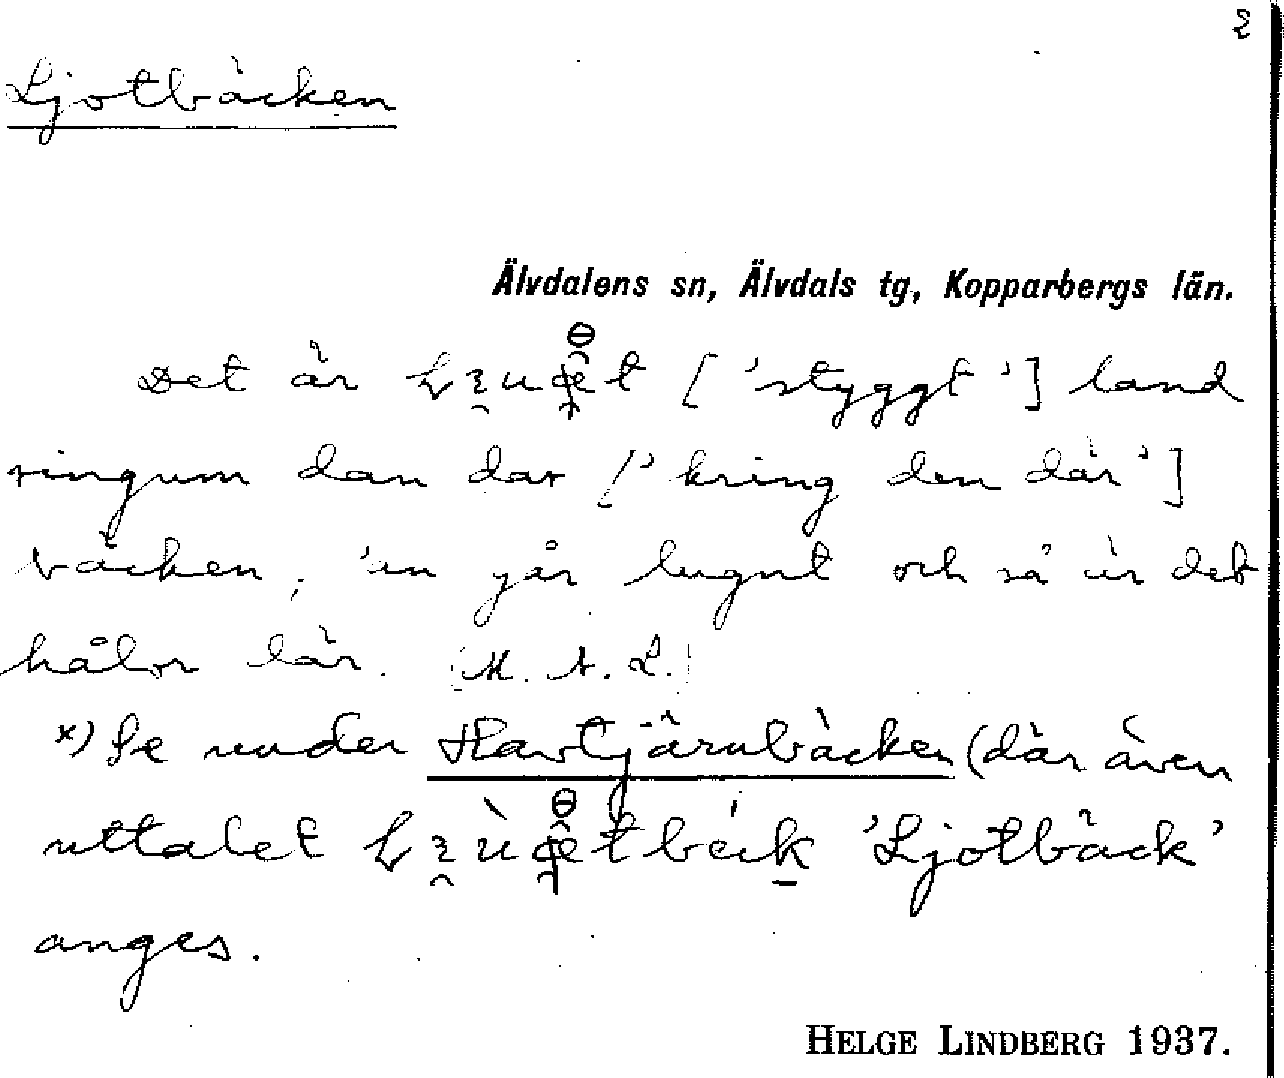 2
Ljotbäcken
Älvdalens sn, Älvdals tg, Kopparbergs län.
Det är ['styggt'] land
ringum dan dar ['kring den där']
bäcken, 'an går lugnt och så är det
hålor där. (M. A. L.)
*) Se under Havtjärnbäcken (där även
uttalet 'Ljotbäck'
anges.
HELGE LINDBERG 1937.